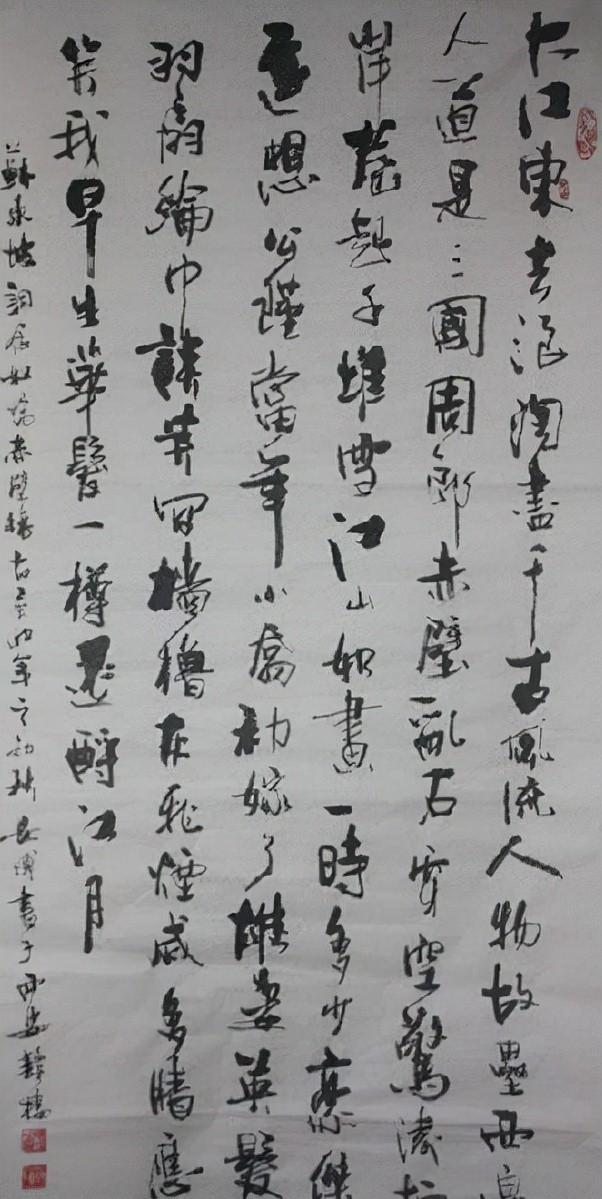 大江東去浪淘盡千古風流人物故壘西
人道是三國周郎赤壁亂石穿空驚濤拍
岸卷起千堆雪江山如畫一時多少豪傑
遙想公瑾當年小喬初嫁了雄姿英發
羽扇綸巾談笑間檣櫓灰飛煙滅多情應
笑我早生華髮一樽還酹江月
蘇東坡詞念奴嬌赤壁懷古年之初秋書于西安